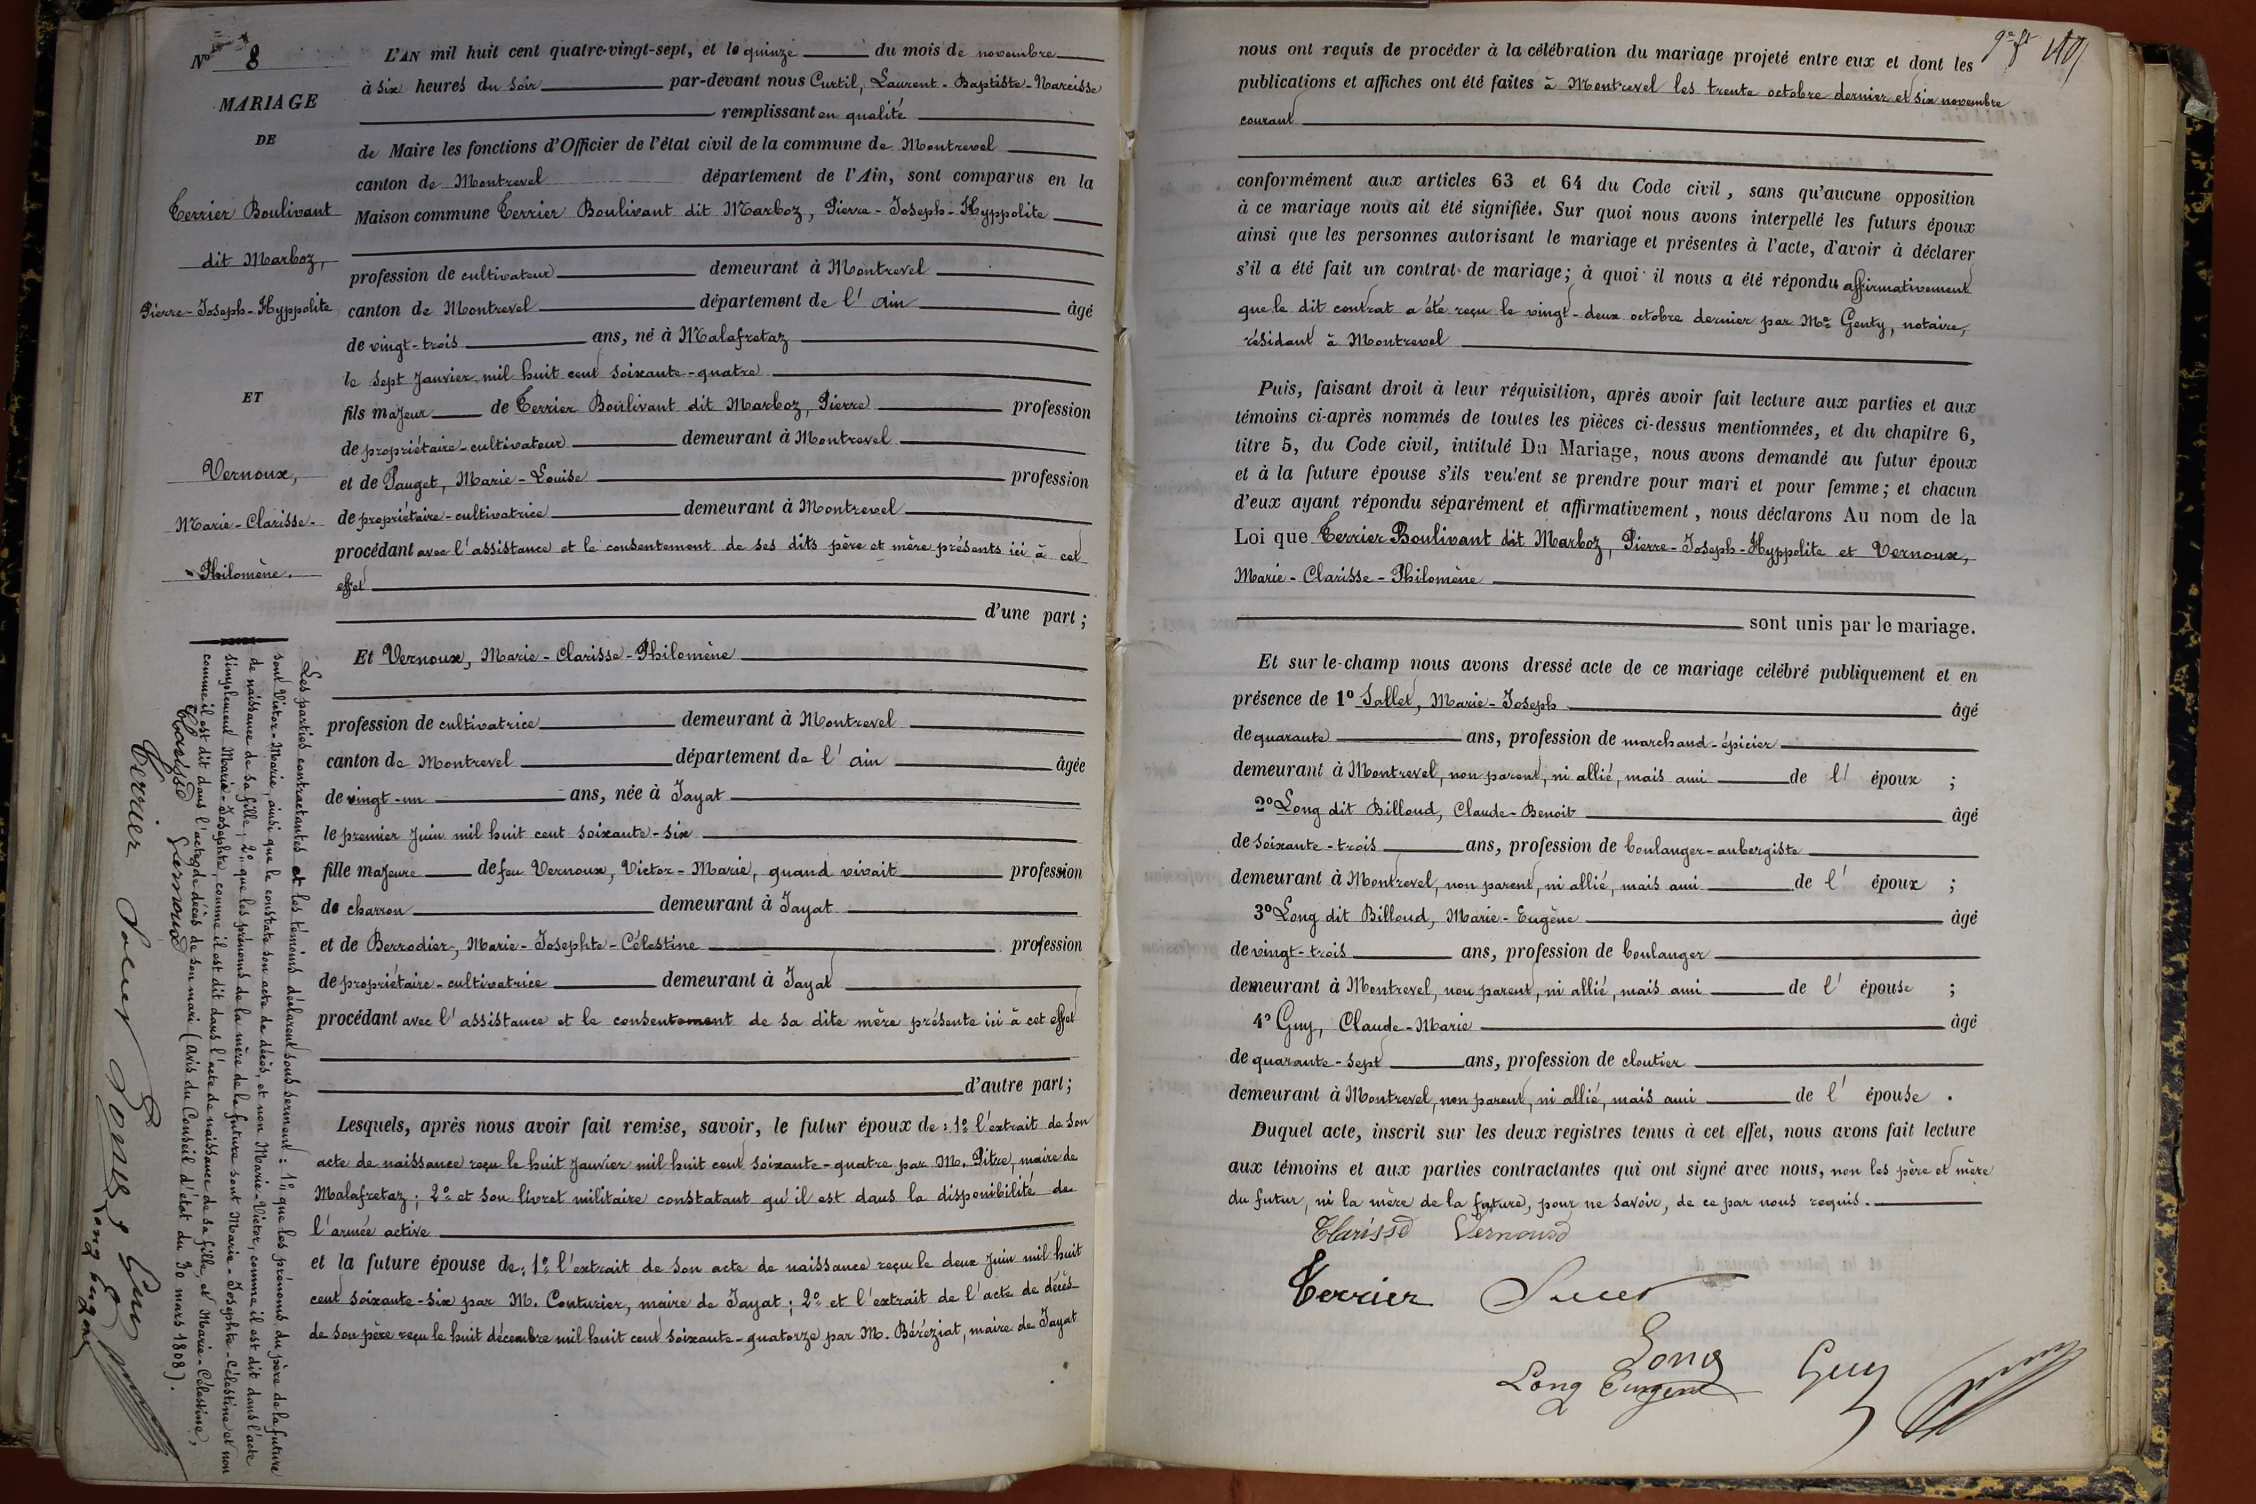 No 8
MARIAGE
DE
Terrier Boulivant
dit Marboz,
Pierre-Joseph-Hyppolite
ET
Vernoux,
Marie-Clarisse-
Philomène.
L'AN mil huit cent quatre-vingt-sept, et le quinze du mois de novembre
à six heures du soir par-devant nous Curtil, Laurent-Baptiste-Narcisse
remplissant en qualité
de Maire les fonctions d'Officier de l'état civil de la commune de Montrevel
canton de Montrevel département de l'Ain, sont comparus en la
Maison commune Terrier Boulivant dit Marboz, Pierre-Joseph-Hyppolite
profession de cultivateur demeurant à Montrevel
canton de Montrevel département de l'ain âgé
de vingt-trois ans, né à Malafretaz
le sept Janvier mil huit cent soixante-quatre
fils majeur de Terrier Boulivant dit Marboz, Pierre profession
de propriétaire-cultivateur demeurant à Montrevel
et de Pauget, Marie-Louise profession
de propriétaire-cultivatrice demeurant à Montrevel
procédant avec l'assistance et le consentement de ses dits père et mère présents ici à cet
effet
d'une part ;
Et Vernoux, Marie-Clarisse-Philomène
profession de cultivatrice demeurant à Montrevel
canton de Montrevel département de l'ain âgée
de vingt-un ans, née à Jayat
le premier Juin mil huit cent soixante-six
fille majeure de feu Vernoux, Victor-Marie, quand vivait profession
de charron demeurant à Jayat
et de Berrodier, Marie-Josephte-Célestine profession
de propriétaire-cultivatrice demeurant à Jayat
procédant avec l'assistance et le consentement de sa dite mère présente ici à cet effet
d'autre part ;
Lesquels, après nous avoir fait remise, savoir, le futur époux de : 1º l'extrait de son
acte de naissance reçu le huit Janvier mil huit cent soixante-quatre par M. Pitre, maire de
Malafretaz ; 2º et son livret militaire constatant qu'il est dans la disponibilité de
l'armée active
et la future épouse de : 1º l'extrait de son acte de naissance reçu le deux Juin mil huit
cent soixante-six par M. Couturier, maire de Jayat ; 2º et l'extrait de l'acte de décès
de son père reçu le huit décembre mil huit cent soixante-quatorze par M. Béréziat, maire de Jayat
Les parties contractantes et les témoins déclarent sous serment : 1º que les prénoms du père de la future
sont Victor-Marie, ainsi que le constate son acte de décès, et non Marie-Victor, comme il est dit dans l'acte
de naissance de sa fille ; 2º que les prénoms de la mère de la future sont Marie-Josephte-Célestine et non
simplement Marie-Josephte, comme il est dit dans l'acte de naissance de sa fille, et Marie-Célestine,
comme il est dit dans l'acte de décès de son mari (avis du Conseil d'état du 30 mars 1808).
Clarisse Vernoux
Terrier Long Guy
Long Eugene
nous ont requis de procéder à la célébration du mariage projeté entre eux et dont les
publications et affiches ont été faites à Montrevel les trente octobre dernier et six novembre
courant
conformément aux articles 63 et 64 du Code civil, sans qu'aucune opposition
à ce mariage nous ait été signifiée. Sur quoi nous avons interpellé les futurs époux
ainsi que les personnes autorisant le mariage et présentes à l'acte, d'avoir à déclarer
s'il a été fait un contrat de mariage ; à quoi il nous a été répondu affirmativement
que le dit contrat a été reçu le vingt-deux octobre dernier par Me Genty, notaire,
résidant à Montrevel
Puis, faisant droit à leur réquisition, après avoir fait lecture aux parties et aux
témoins ci-après nommés de toutes les pièces ci-dessus mentionnées, et du chapitre 6,
titre 5, du Code civil, intitulé Du Mariage, nous avons demandé au futur époux
et à la future épouse s'ils veulent se prendre pour mari et pour femme ; et chacun
d'eux ayant répondu séparément et affirmativement, nous déclarons Au nom de la
Loi que Terrier Boulivant dit Marboz, Pierre-Joseph-Hyppolite et Vernoux,
Marie-Clarisse-Philomène
sont unis par le mariage.
Et sur-le-champ nous avons dressé acte de ce mariage célébré publiquement et en
présence de 1º Sallet, Marie-Joseph âgé
de quarante ans, profession de marchand-épicier
demeurant à Montrevel, non parent, ni allié, mais ami de l'époux ;
2º Long dit Billoud, Claude-Benoit âgé
de soixante-trois ans, profession de boulanger-aubergiste
demeurant à Montrevel, non parent, ni allié, mais ami de l'époux ;
3º Long dit Billoud, Marie-Eugène âgé
de vingt-trois ans, profession de boulanger
demeurant à Montrevel, non parent, ni allié, mais ami de l'épouse ;
4º Guy, Claude-Marie âgé
de quarante-sept ans, profession de cloutier
demeurant à Montrevel, non parent, ni allié, mais ami de l'épouse.
Duquel acte, inscrit sur les deux registres tenus à cet effet, nous avons fait lecture
aux témoins et aux parties contractantes qui ont signé avec nous, non les père et mère
du futur, ni la mère de la future, pour ne savoir, de ce par nous requis.
Clarisse Vernoux
Terrier
Long
Long Eugene Guy